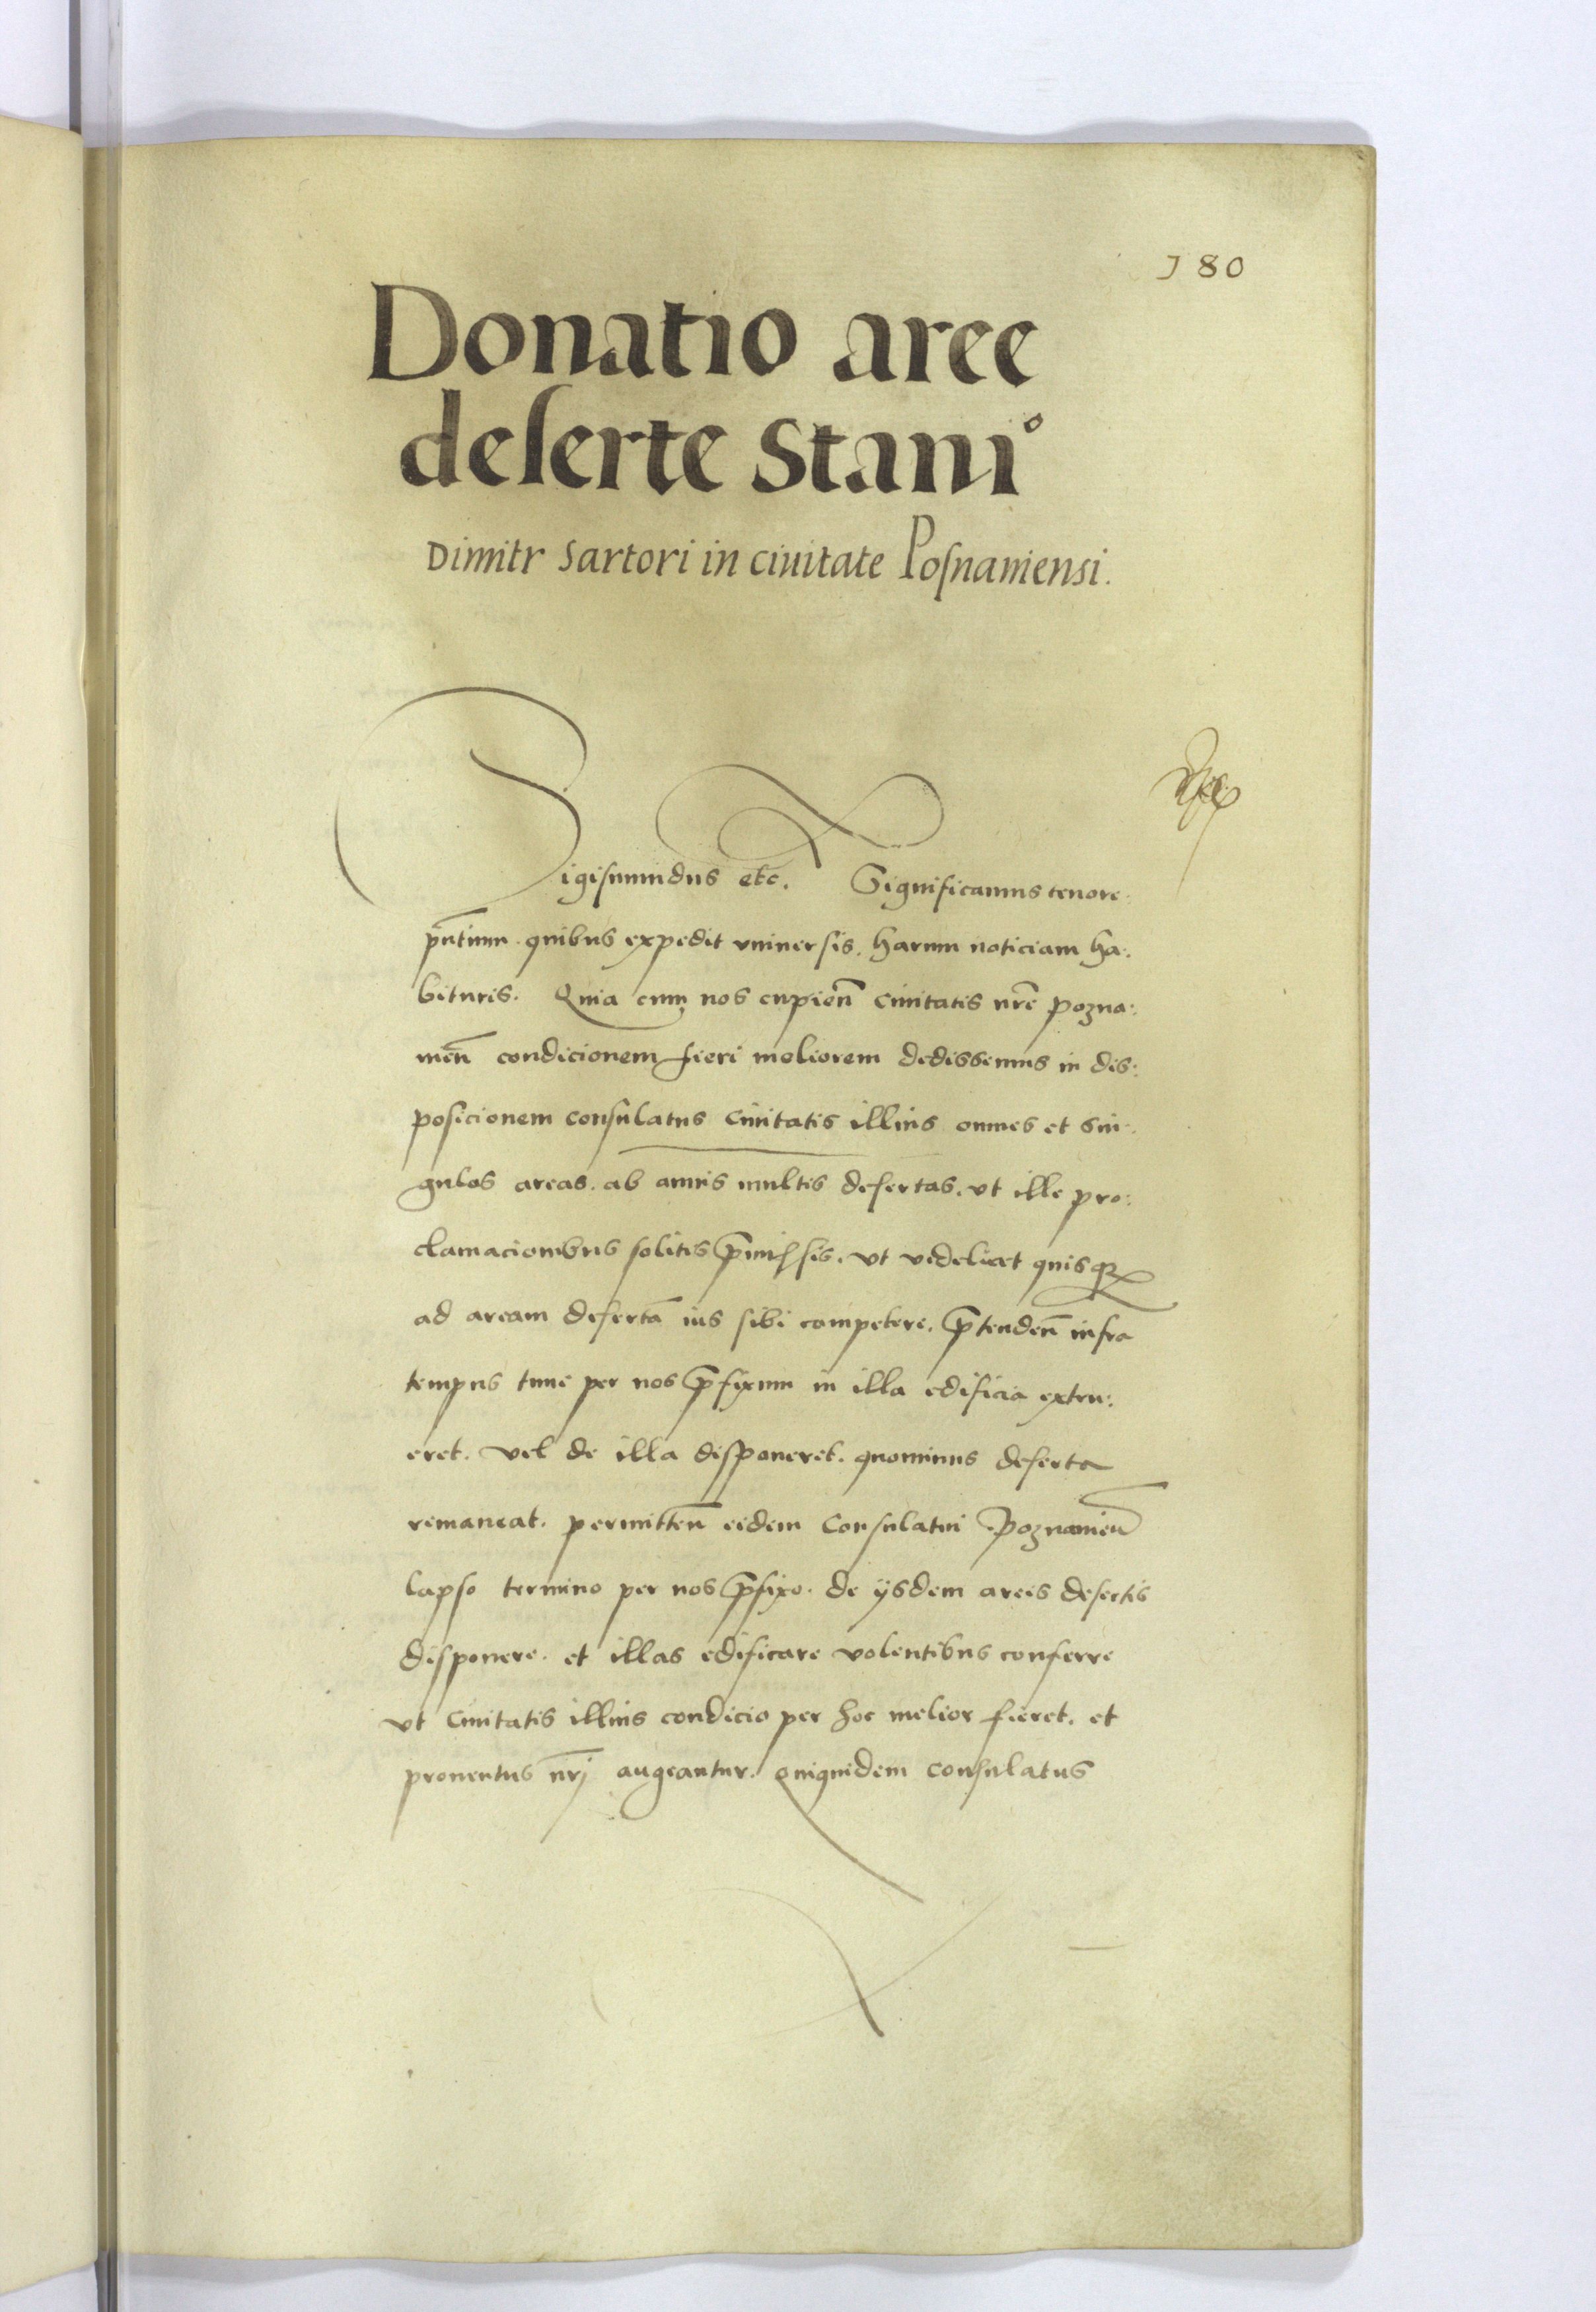 180
Donatio aree
deserte Stanio
Dimitr Sartori in ciuitate Posnaniensi.
Sigismundus etc. Significamus tenore
pn̄tium. quibus expedit vniuersis. harum noticiam ha:
bituris. Quia cum nos cupien̄ Ciuitatis nr̄e pozna:
nien̄ condicionem fieri meliorem dedissemus in dis:
posicionem consulatus Ciuitatis illius omnes et sin:
gulas areas. ab annis multis desertas. vt ille pro:
clamacionibus solitis p̄missis. vt videlicet quisq
ad aream desertā ius sibi competere. p̄tenden̄ infra
tempus tunc per nos p̄fixum in illa edificia extru:
eret. vel de illa disponeret. quominus deserta
remaneat. permitten̄ eidem Consulatui Poznanien̄
lapso termino per nos p̄fixo. de ijsdem areis desertis
disponere. et illas edificare volentibus conferre
vt Ciuitatis illius condicio per hoc melior fieret. et
prouentus nrī augeantur. Quiquidem consulatus